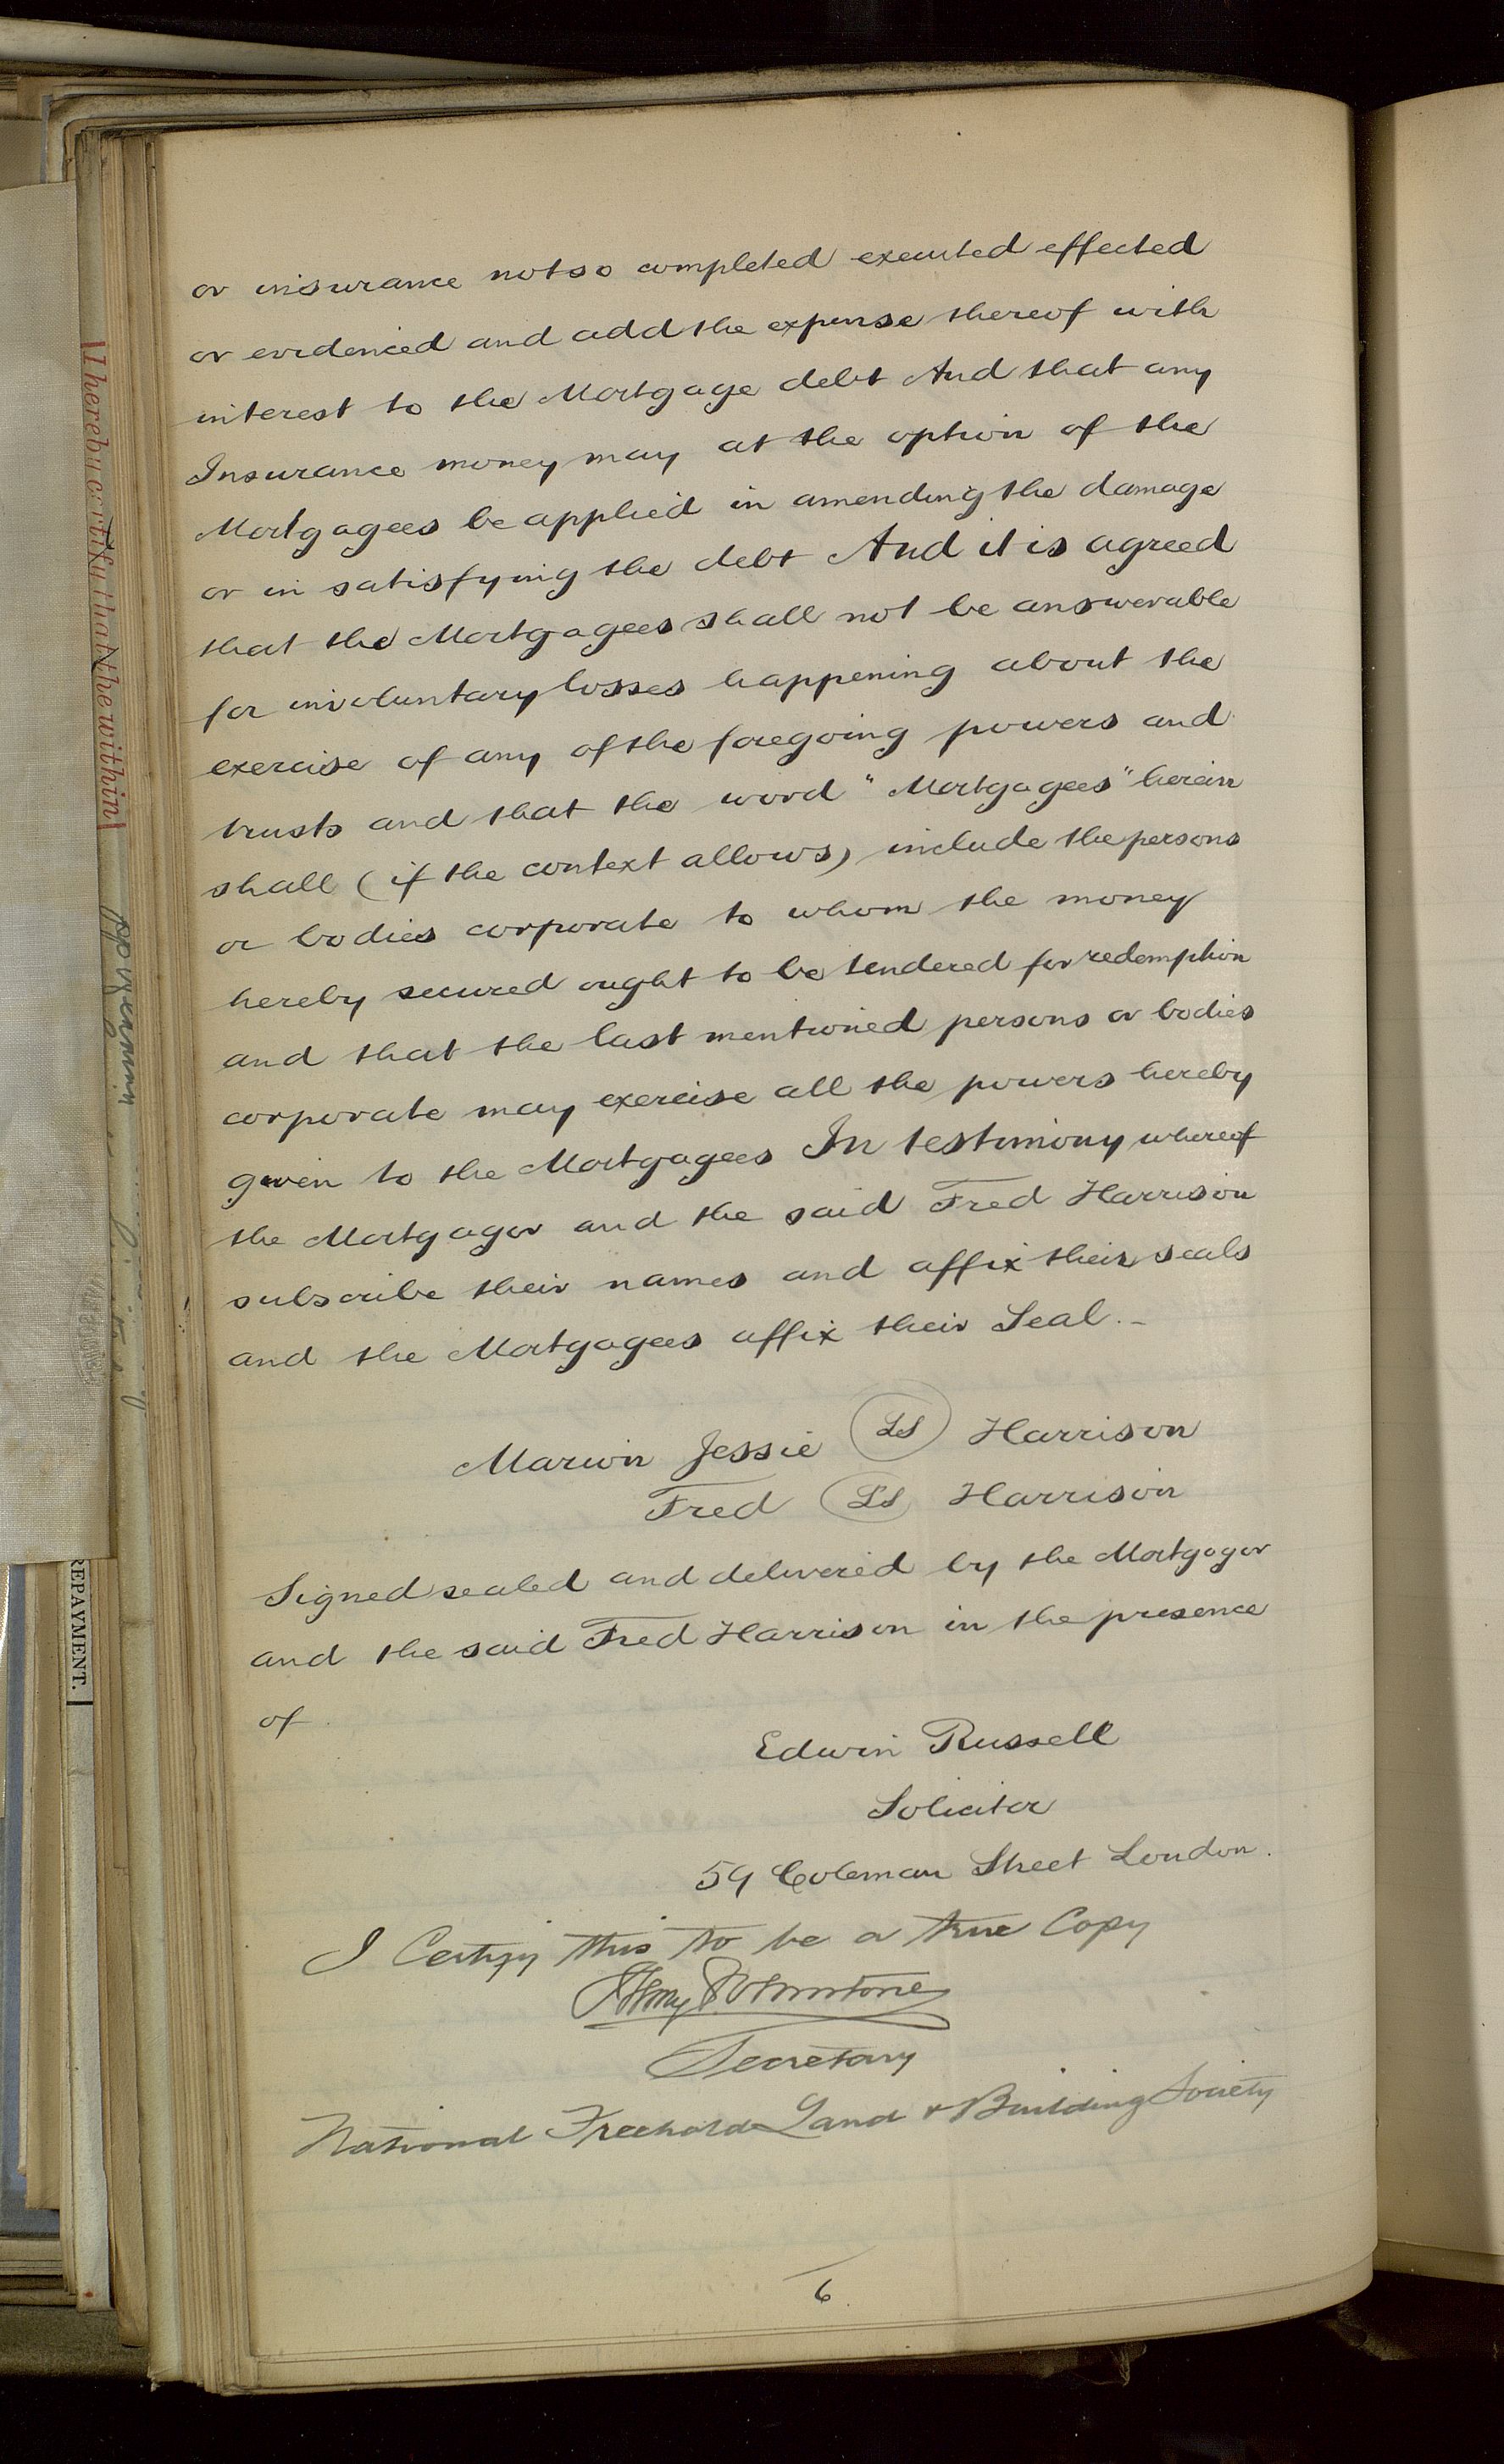 or insurance not so completed executed effected
or evidenced and add the expense thereof with
interest to the Mortgage debt And that any
Insurance money may at the option of the
Mortgagees be applied in amending the damage
or in satisfying the debt And it is agreed
that the Mortgagees shall not be answerable
for involuntary losses happening about the
exercise of any of the foregoing powers and
trusts and that the word "Mortgagees" herein
shall (if the context allows) include the persons
or bodies corporate to whom the money
hereby secured ought to be tendered for redemption
and that the last mentioned persons or bodies
corporate may exercise all the powers hereby
given to the Mortgagees In testimony whereof
the Mortgagor and the said Fred Harrison
subscribe their names and affix their seals
and the Mortgagees affix their Seal.-
Marion Jessie LS Harrison
Fred LS Harrison
Signed sealed and delivered by the Mortgagor
and the said Fred Harrison in the presence
of
Edwin Russell
Solicitor
59 Coleman Street London.
I Certify this to be a true Copy
Johnstone
Secretary
National Freehold Land & Building Society
6
I hereby certify that the within
REPAYMENT.